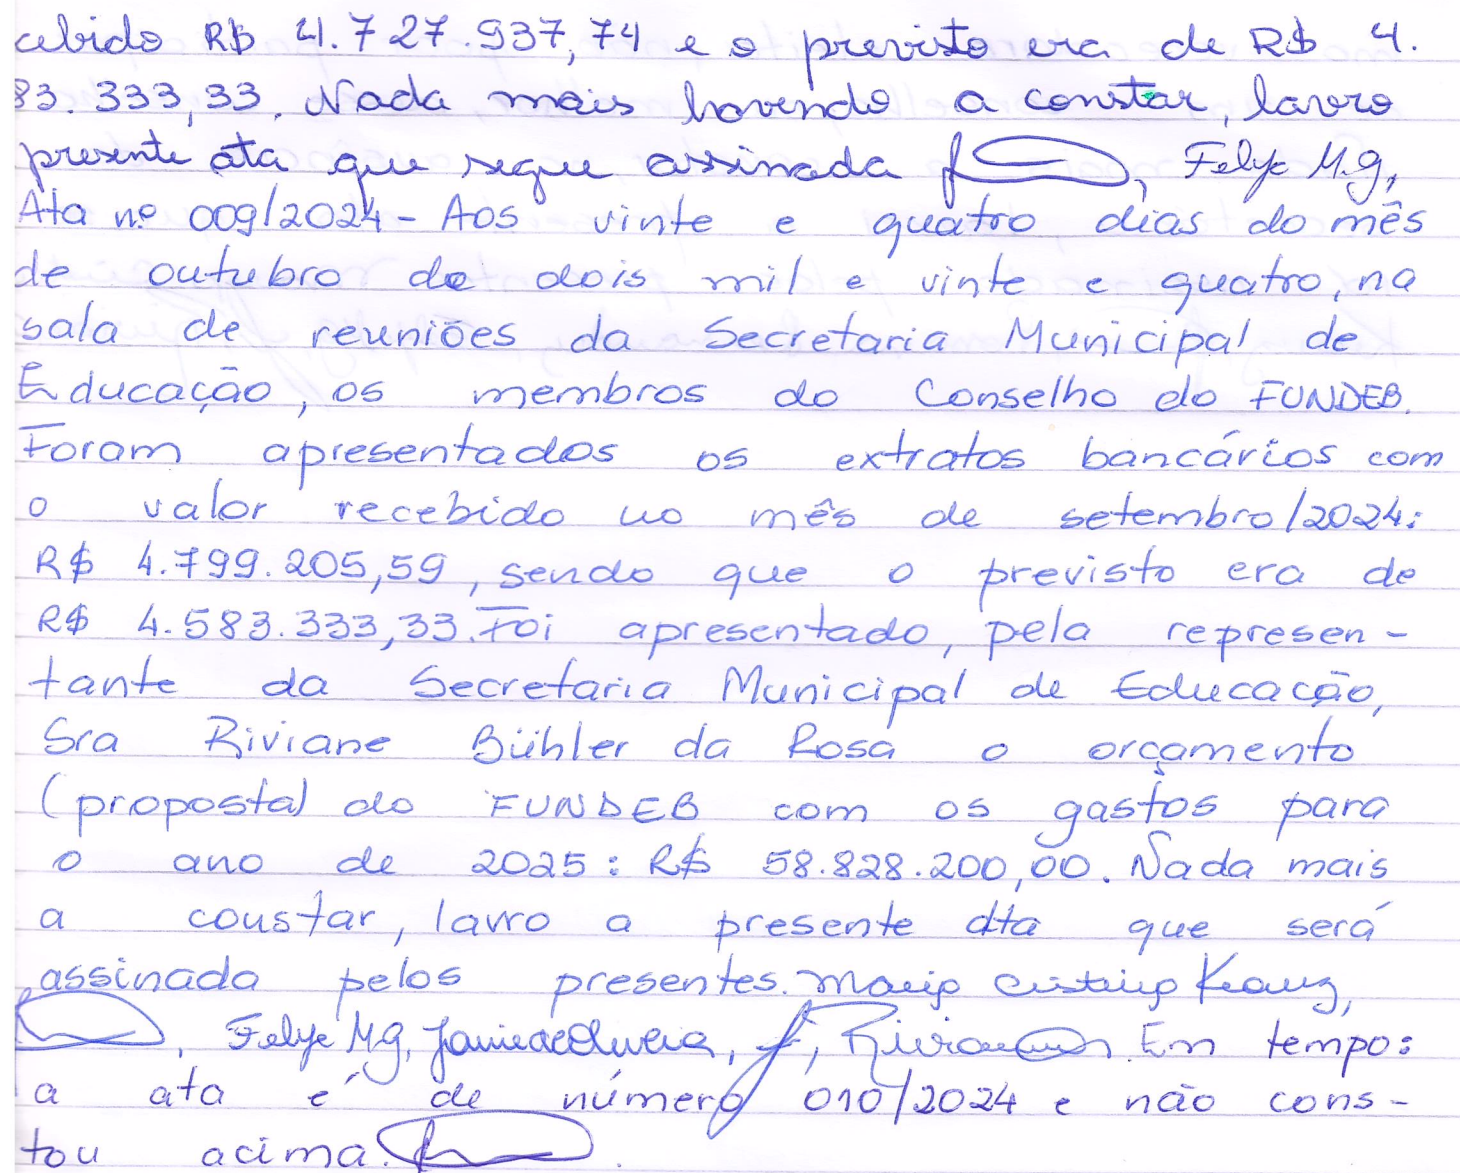 cebido R$ 4.727.937,74 e o previsto era de R$ 4.
83.333,33. Nada mais havendo a constar, lavro
presente ata que segue assinada Felype M.G,
Ata nº 009/2024 - Aos vinte e quatro dias do mês
de outubro de dois mil e vinte e quatro, na
sala de reuniões da Secretaria Municipal de
Educação, os membros do Conselho do FUNDEB.
Foram apresentados os extratos bancários com
o valor recebido no mês de setembro/2024:
R$ 4.799.205,59, sendo que o previsto era de
R$ 4.583.333,33. Foi apresentado, pela represen-
tante da Secretaria Municipal de Educação,
Sra Riviane Bühler da Rosa o orçamento
(proposta) do FUNDEB com os gastos para
o ano de 2025: R$ 58.828.200,00. Nada mais
a constar, lavro a presente ata que será
assinada pelos presentes.
Felype M.G, Em tempo:
a ata é de número 010/2024 e não cons-
tou acima.